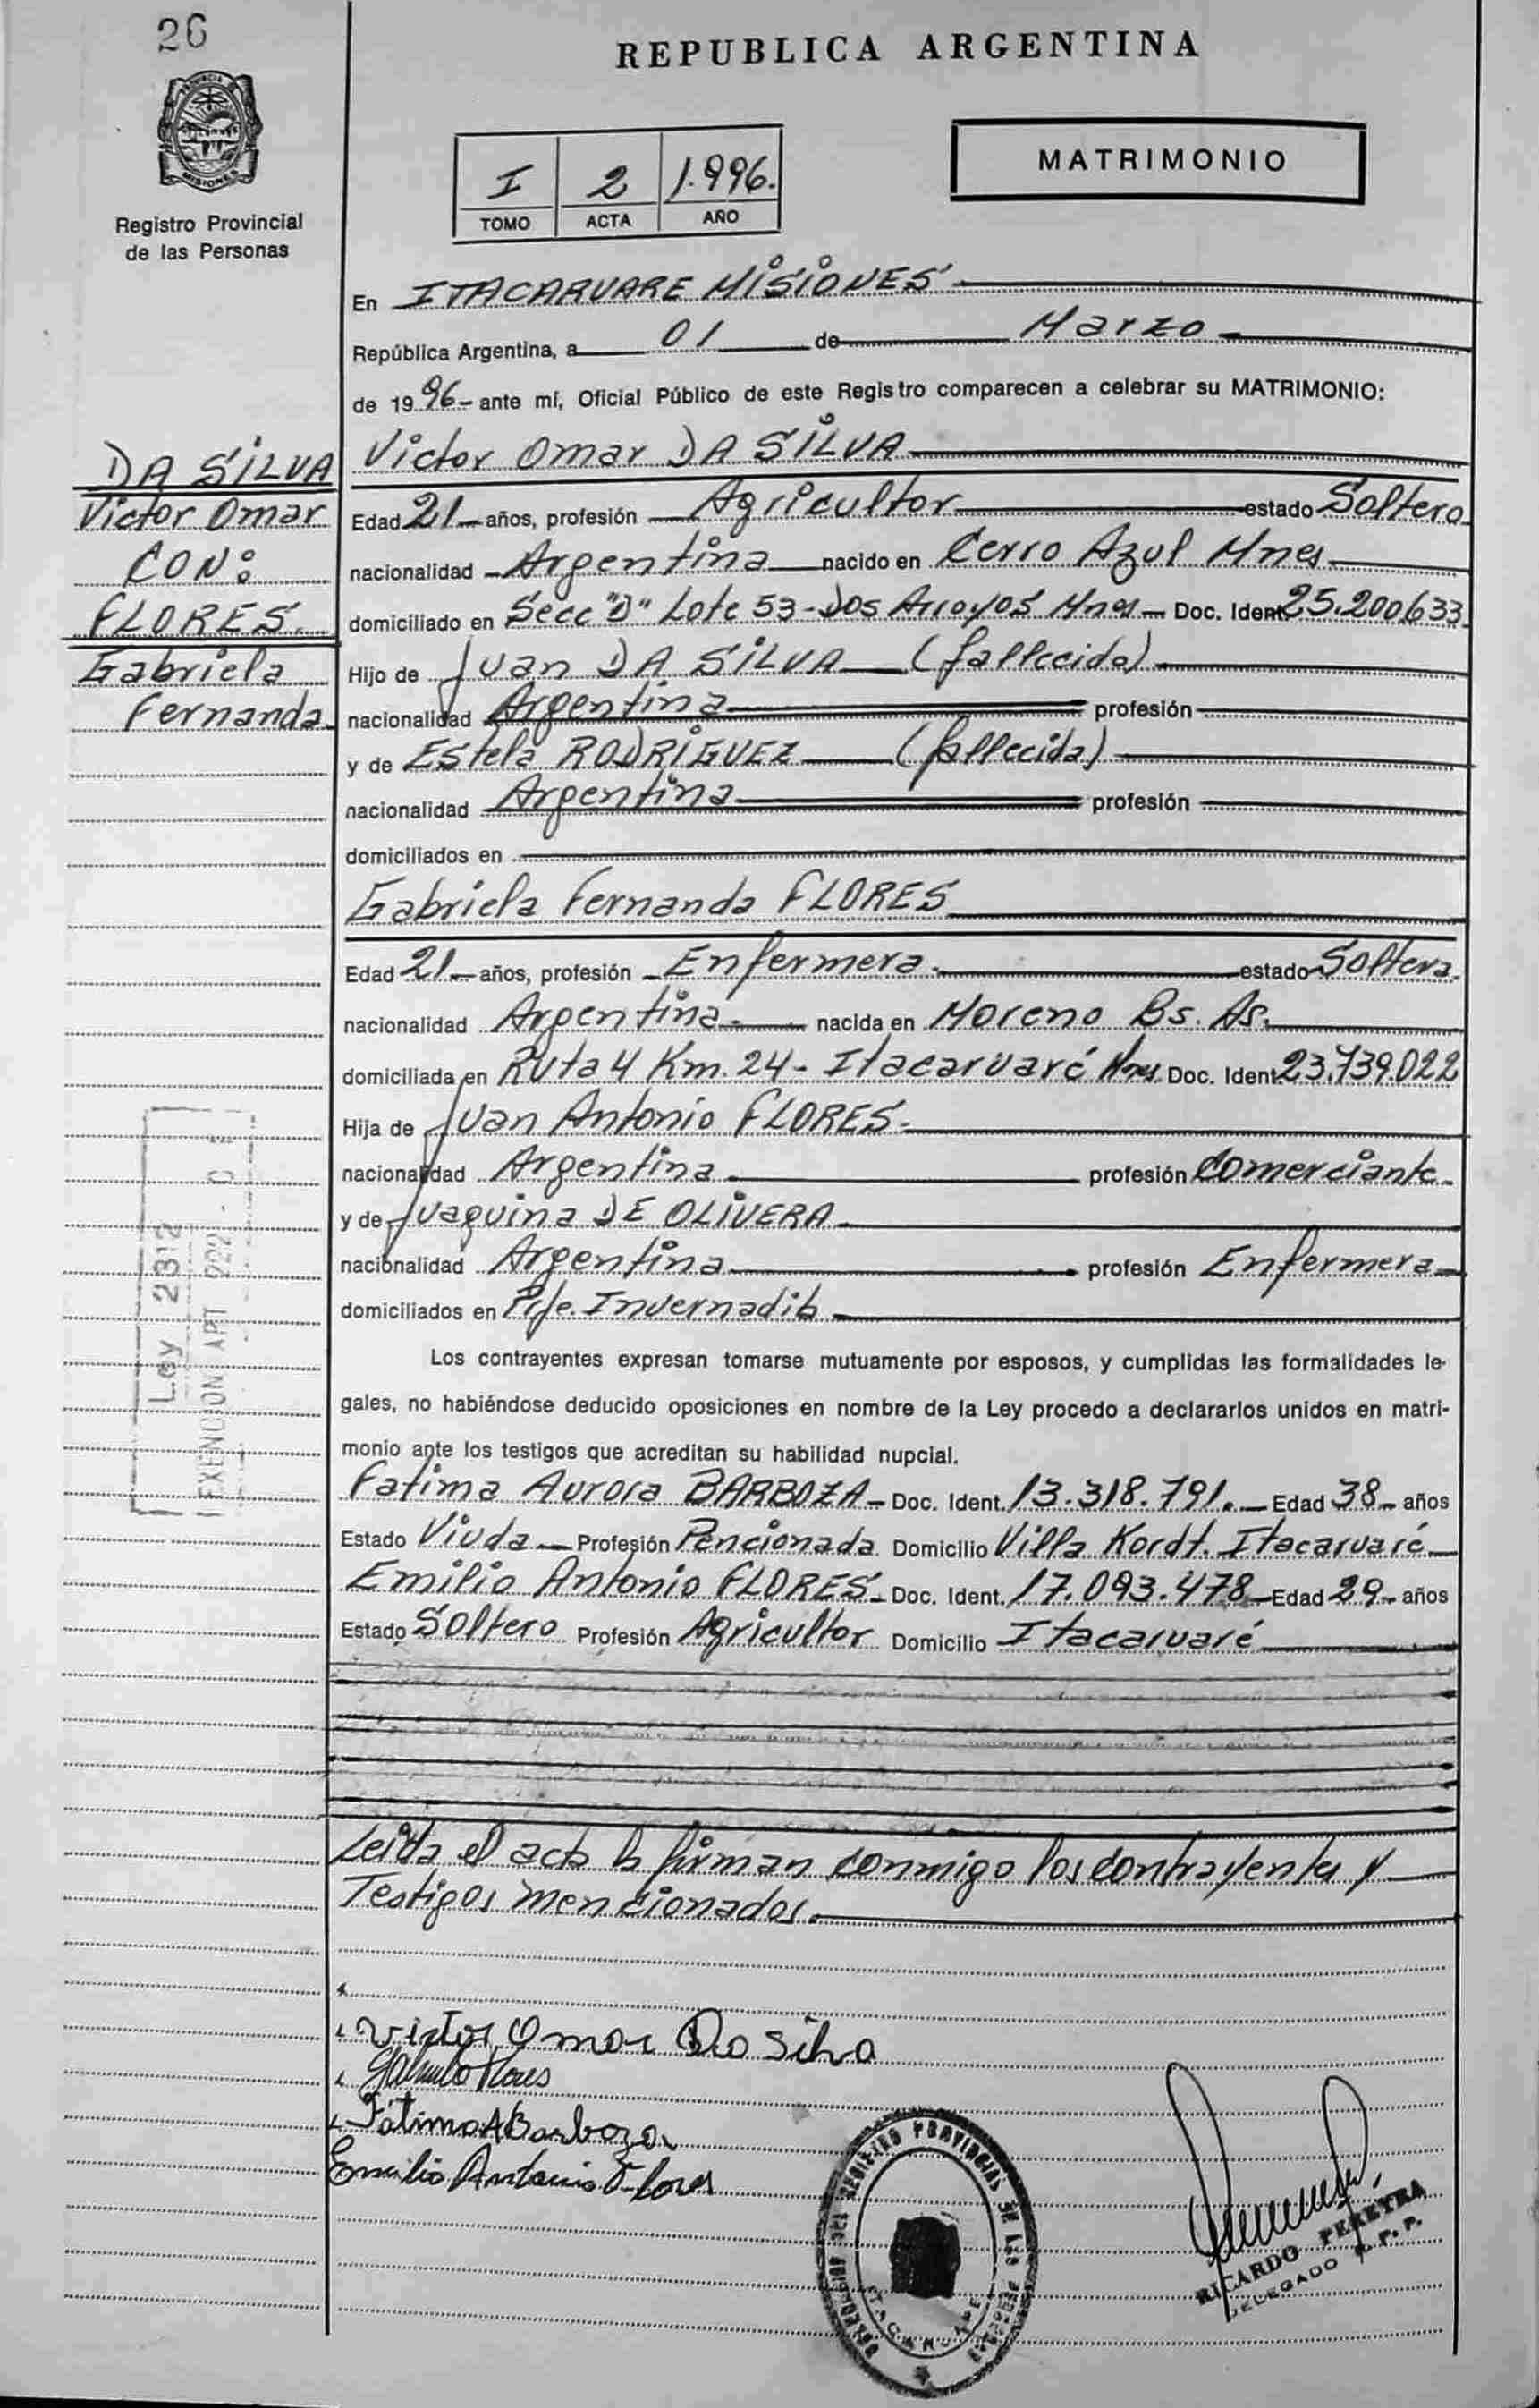 26
REPUBLICA ARGENTINA
PROVINCIA
MISIONES
Registro Provincial
de las Personas
I 2 1.996.
TOMO ACTA AÑO
MATRIMONIO
En ITACARUARE MISIONES
República Argentina, a 01 de Marzo
de 1996 ante mí, Oficial Público de este Registro comparecen a celebrar su MATRIMONIO:
DA SILVA
Victor Omar
CON:
FLORES.
Gabriela
Fernanda
Victor Omar DA SILVA
Edad 21 años, profesión Agricultor estado Soltero
nacionalidad Argentina nacido en Cerro Azul Mnes
domiciliado en Secc "D" Lote 53-Dos Arroyos Mnes Doc. Ident. 25.200.633
Hijo de Juan DA SILVA (fallecido)
nacionalidad Argentina profesión
y de Estela RODRIGUEZ (fallecida)
nacionalidad Argentina profesión
domiciliados en
Gabriela Fernanda FLORES
Edad 21 años, profesión Enfermera estado Soltera.
nacionalidad Argentina nacida en Moreno Bs. As.
domiciliada en Ruta 4 Km. 24- Itacaruaré Mnes. Doc. Ident. 23.739.022
Hija de Juan Antonio FLORES.
nacionalidad Argentina profesión Comerciante
y de Juaquina DE OLIVERA
nacionalidad Argentina profesión Enfermera
domiciliados en Pje. Invernadib
Los contrayentes expresan tomarse mutuamente por esposos, y cumplidas las formalidades le-
gales, no habiéndose deducido oposiciones en nombre de la Ley procedo a declararlos unidos en matri-
monio ante los testigos que acreditan su habilidad nupcial.
Fatima Aurora BARBOZA Doc. Ident. 13.318.791. Edad 38 años
Estado Viuda Profesión Pencionada Domicilio Villa Kordt. Itacaruaré
Emilio Antonio FLORES Doc. Ident. 17.093.478 Edad 29 años
Estado Soltero Profesión Agricultor Domicilio Itacaruaré
Ley 2312
EXENCION ART 222
Leida el acta la firman conmigo los contrayentes y
Testigos mencionados.
Victor Omar Da Silva
Gabriela Flores
Fátima A Barboza
Emilio Antonio Flores
DELEGACION DEL REGISTRO PROVINCIAL DE LAS PERSONAS
ITACARUARE
RICARDO PEREYRA
DELEGADO R. P. P.